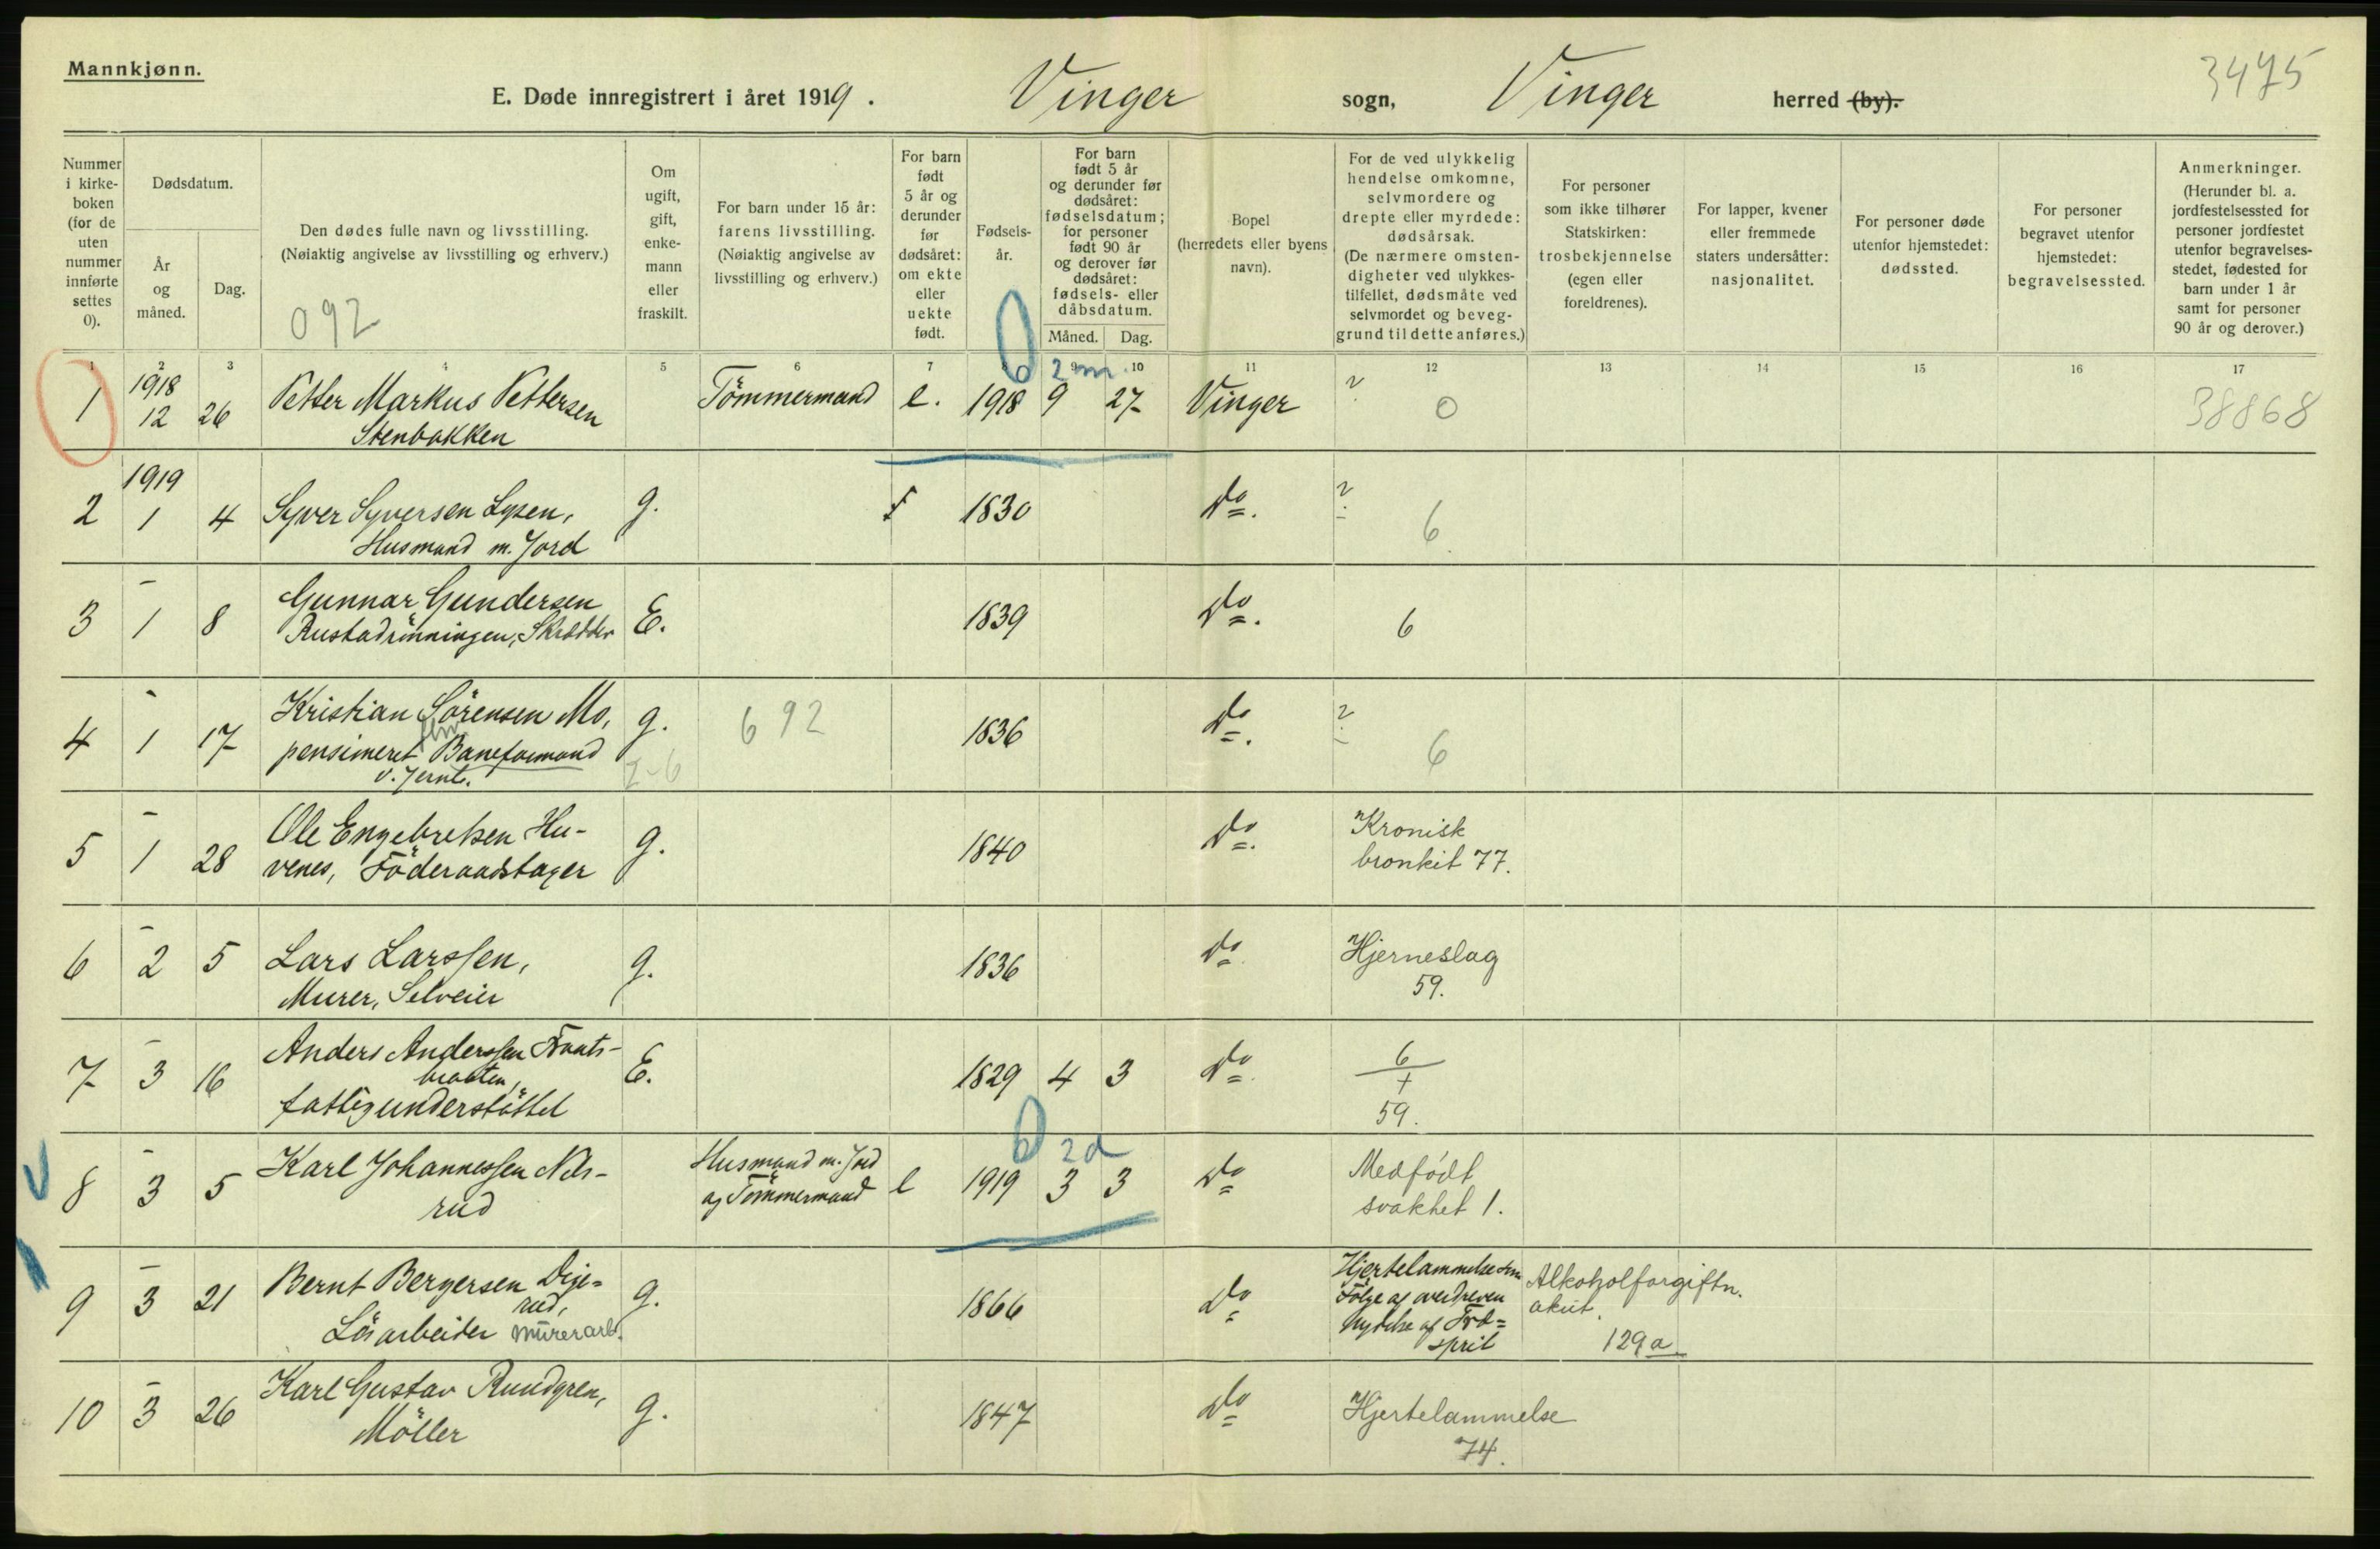 Mannkjønn.
3475
E. Døde innregistrert i året 1919. Vinger sogn, Vinger herred (by).
Nummer i kirke- boken (for de uten nummer innførte settes 0).
Dødsdatum.
År og måned.
Dag.
Den dødes fulle navn og livsstilling.
(Nøiaktig angivelse av livsstilling og erhverv.)
092
Om ugift, gift, enke- mann eller fraskilt.
For barn under 15 år: farens livsstilling. (Nøiaktig angivelse av livsstilling og erhverv.)
For barn født 5 år og derunder før dødsåret: om ekte eller uekte født.
Fødsels- år.
For barn født 5 år og derunder før dødsåret: fødselsdatum; for personer født 90 år og derover før dødsåret: fødsels- eller dåbsdatum.
Måned. Dag.
Bopel (herredets eller byens navn).
For de ved ulykkelig hendelse omkomne, selvmordere og drepte eller myrdede: dødsårsak. (De nærmere omsten- digheter ved ulykkes- tilfellet, dødsmåte ved selvmordet og beveg- grund til dette anføres.)
For personer som ikke tilhører Statskirken: trosbekjennelse (egen eller foreldrenes).
For lapper, kvener eller fremmede staters undersåtter: nasjonalitet.
For personer døde utenfor hjemstedet: dødssted.
For personer begravet utenfor hjemstedet: begravelsessted.
Anmerkninger. (Herunder bl. a. jordfestelsessted for personer jordfestet utenfor begravelses- stedet, fødested for barn under 1 år samt for personer 90 år og derover.)
1 2 3 4 5 6 7 8 9 10 11 12 13 14 15 16 17
2 m.
1 1918 12 26 Petter Markus Pettersen Tömmermand e. 1918 9 27 Vinger ? 0 38868
Stenbakken
1919
2 1 4 Syver Syversen Lysen, g. 1830 Do. ? 6
Husmand m. Jord
3 - 1 8 Gunnar Gundersen E. 1839 Do. 6
Rustadrönningen, Skrædder
4 - 1 17 Kristian Sörensen Mo, g. 692 1836 Do. ? 6
pensioneret Baneformand
v. Jernb.
5 - 1 28 Ole Engebretsen Hu- g. 1840 Do. Kronisk
venes, Föderaadstager bronkit 77.
6 - 2 5 Lars Larssen, g. 1836 Do. Hjerneslag
Murer, Selveier 59.
7 - 3 16 Anders Anderssen E. 1829 4 3 Do. 6
braaten, +
fattigunderstöttet 59.
2 d
8 - 3 5 Karl Johannessen Nils- Husmand m. Jord e 1919 3 3 Do Medfødt
rud og Tömmermand svakhet 1.
9 - 3 21 Bernt Bergersen Dige- g. 1866 Do Hjertelammelse som Alkoholforgiftn.
rud, Følge af overdreven akut.
Lösarbeider murerarb. Nydelse af Træ- 129a
sprit
10 - 3 26 Karl Gustav Rundgren, g. 1847 Do Hjertelammelse
Möller 74.